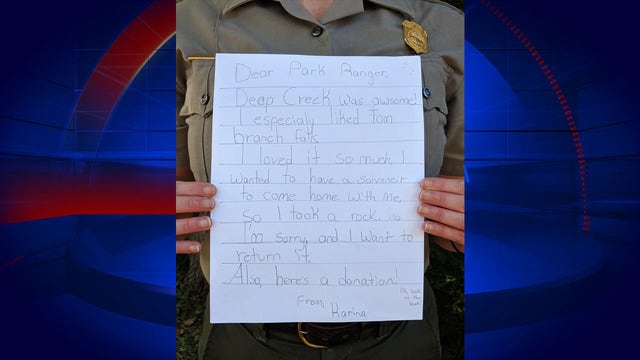 Dear Park Ranger,
Deap Creek was awsome!
I especialy liked tom
branch falls
I loved it so much, I
wanted to have a soivenier
to come home with me,
so I took a rock.
I'm sorry, and I want to
return it.
Also, here's a donation!
From,
Karina